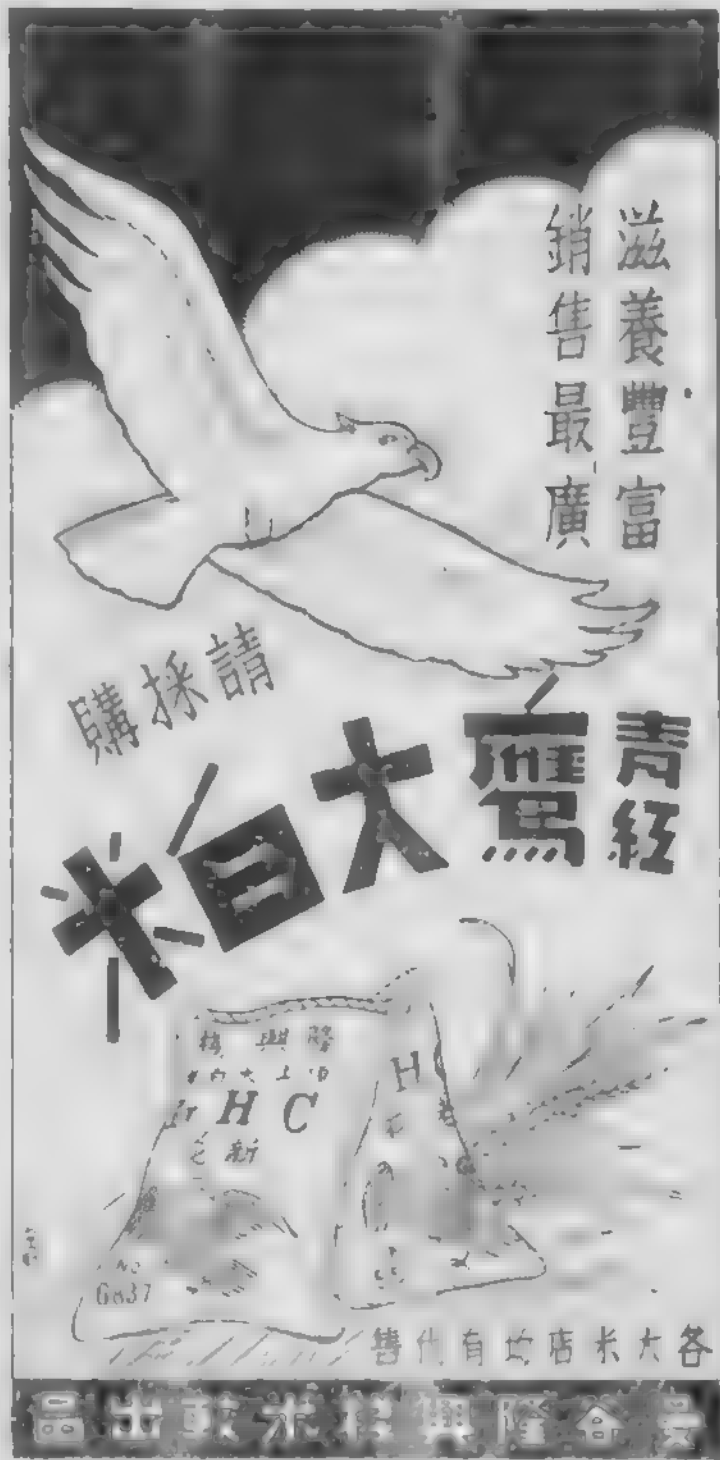 滋養豐富
銷售最廣
請採購
青紅
鷹大白米
隆興
H C
H
新
No
各大米店均有代售
隆興
米
出品